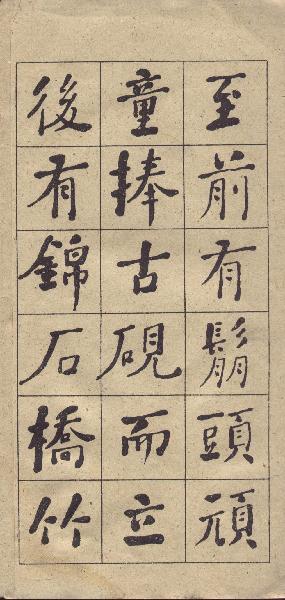 至前有鬅頭頑
童捧古硯而立
後有錦石橋竹